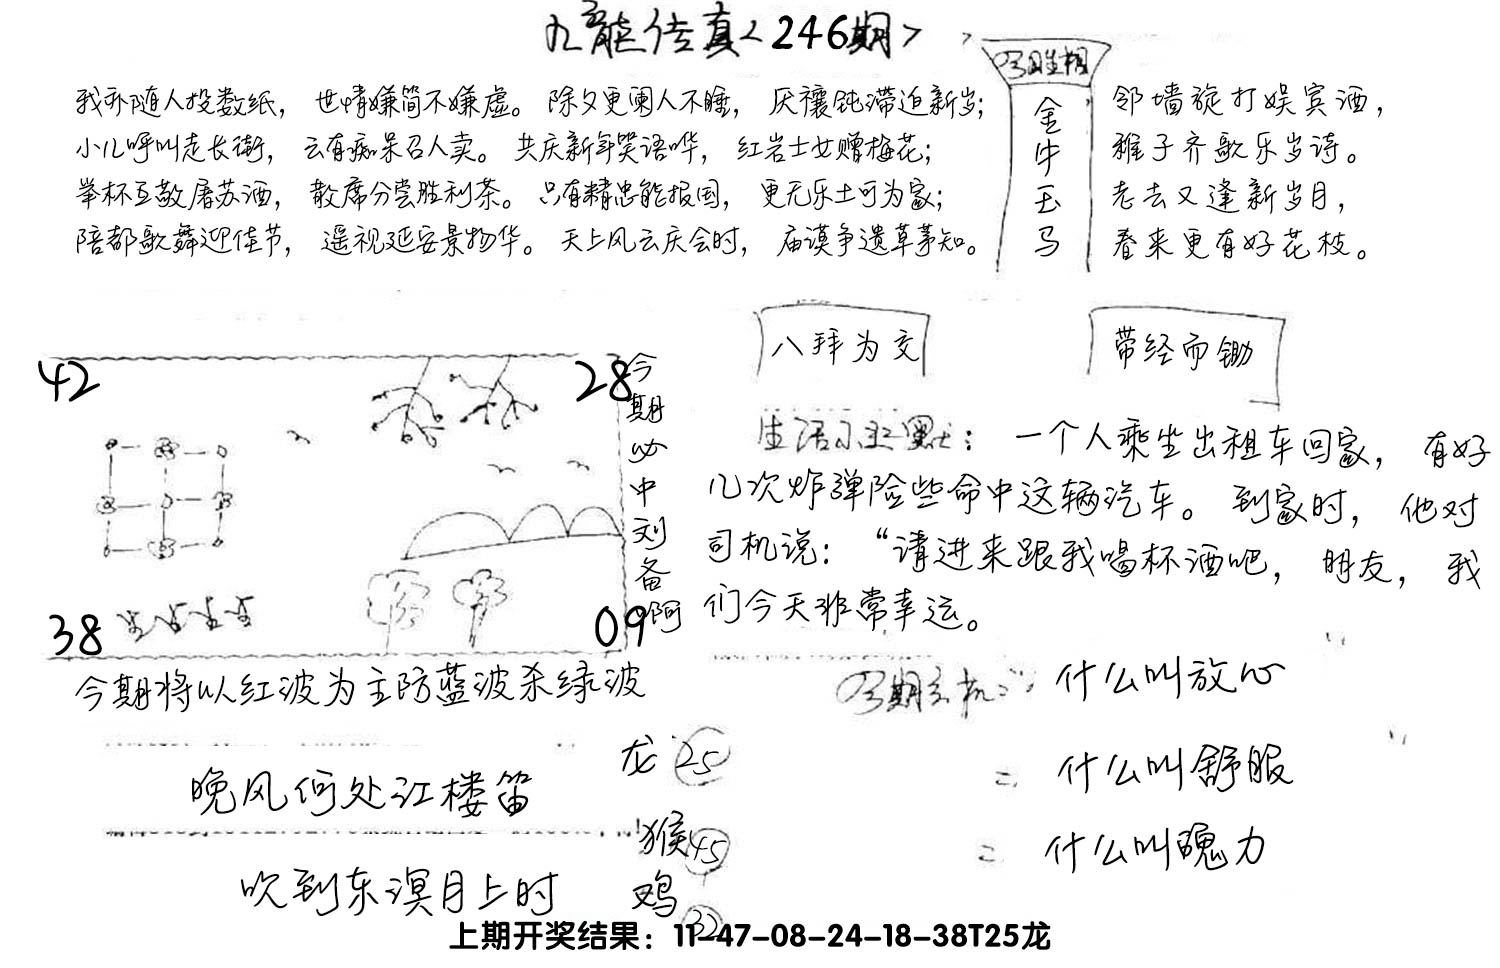 九龙传真<246期>
我亦随人投数纸，世情嫌简不嫌虚。除夕更阑人不睡，厌禳钝滞迫新岁；
小儿呼叫走长街，云有痴呆召人卖。共庆新年笑语哗，红岩士女赠梅花；
举杯互敬屠苏酒，散席分尝胜利茶。只有精忠能报国，更无乐土可为家；
陪都歌舞迎佳节，遥视延安景物华。天上风云庆会时，庙谟争遗草茅知。
今期生相
金牛玉马
邻墙旋打娱宾酒，
稚子齐歌乐岁诗。
老去又逢新岁月，
春来更有好花枝。
八拜为交
带经而锄
42
28
38
09
今期必中刘备阿
生活小幽默：一个人乘坐出租车回家，有好
几次炸弹险些命中这辆汽车。到家时，他对
司机说：“请进来跟我喝杯酒吧，朋友，我
们今天非常幸运。
今期将以红波为主防蓝波杀绿波
今期玄机：什么叫放心
二 什么叫舒服
二 什么叫魄力
晚风何处江楼笛
吹到东溟月上时
龙 25
猴 45
鸡 32
上期开奖结果：11-47-08-24-18-38T25龙